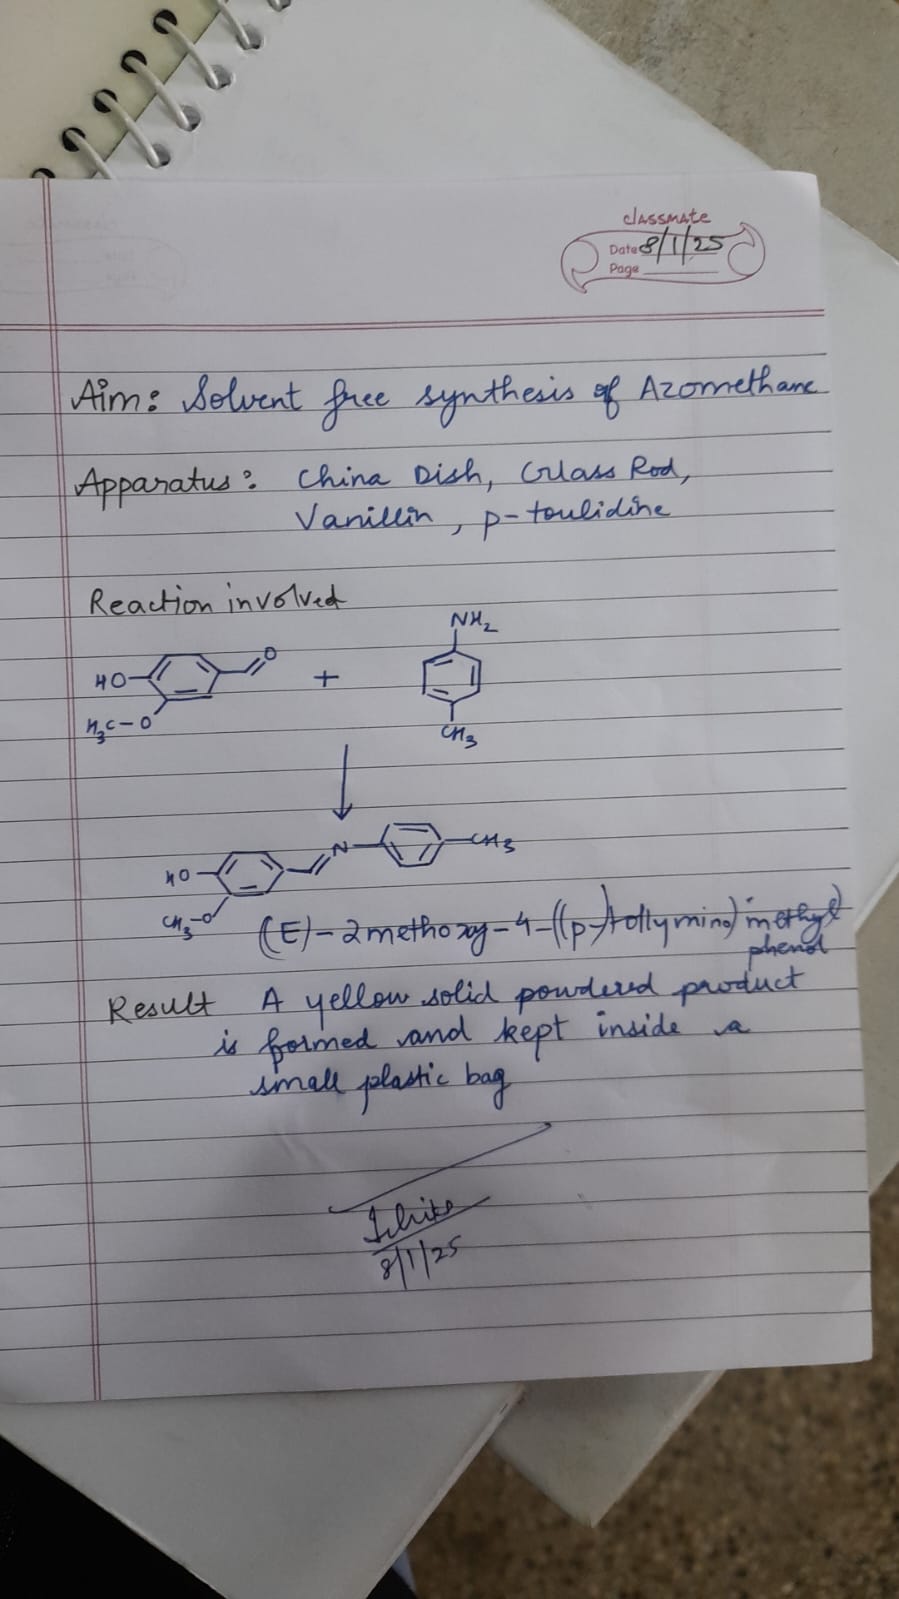 classmate
Date 8/1/25
Page
Aim: Solvent free synthesis of Azomethane
Apparatus: China Dish, Glass Rod,
Vanillin, p-toulidine
Reaction involved
NH2
HO O +
H3C-O
CH3
N CH3
HO
CH3-O
(E)-2methoxy-4-((p-)tollymino) imethyl)
phenol
Result A yellow solid powdered product
is formed and kept inside a
small plastic bag
8/1/25